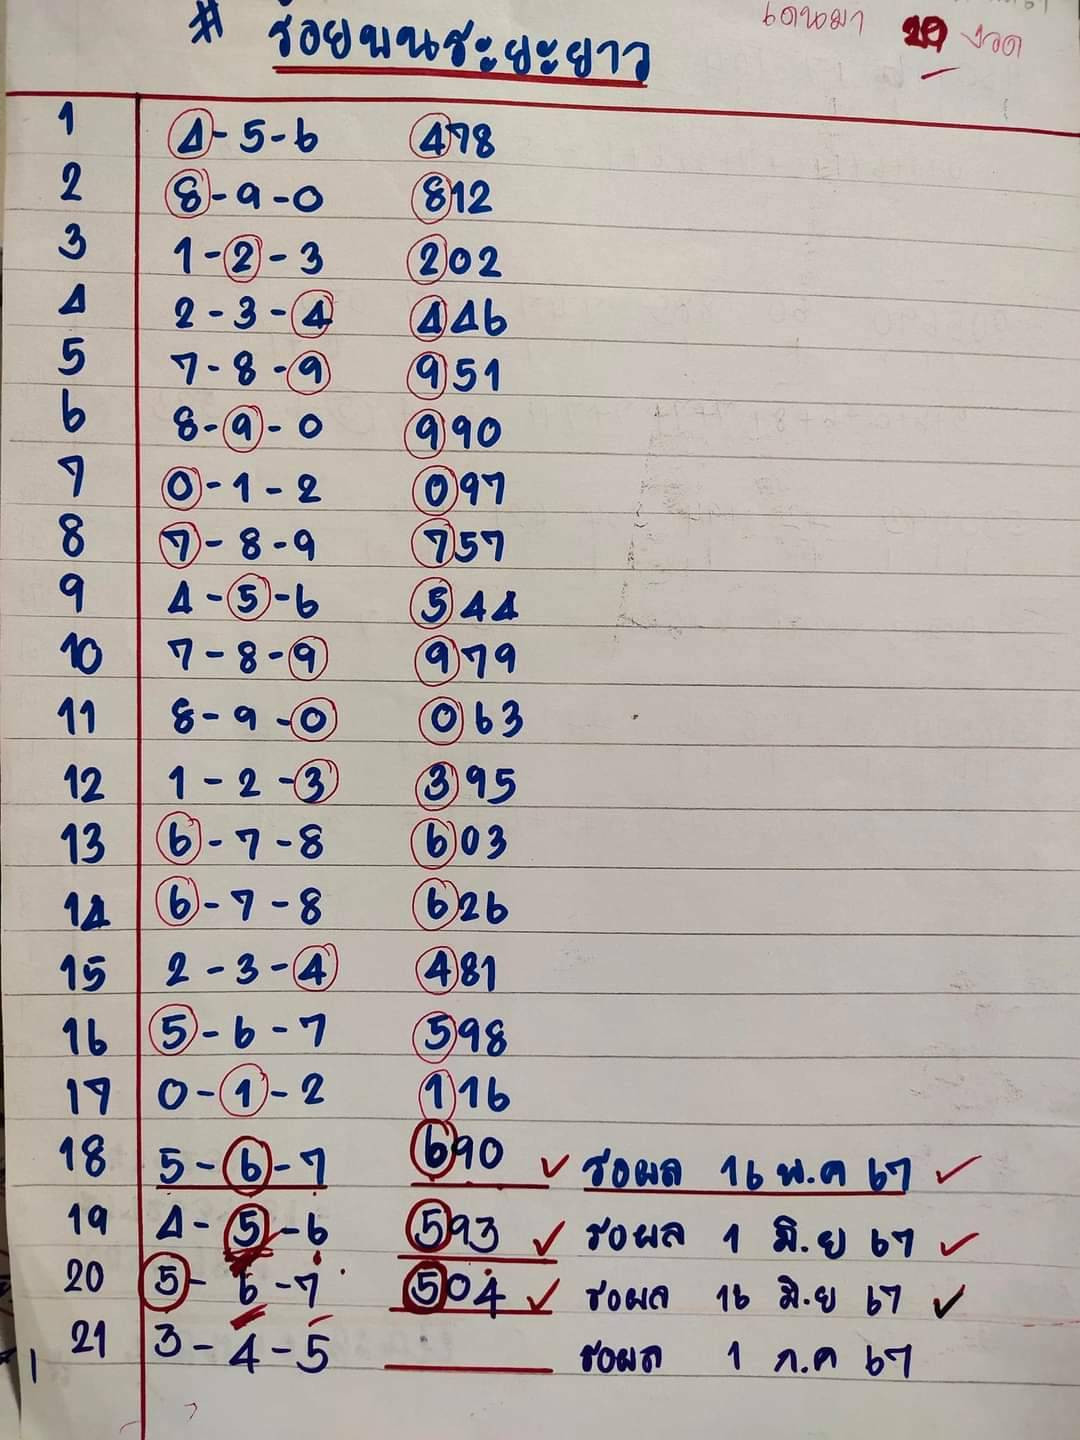 เดินมา 20 งวด
# ร้อยบนระยะยาว
1 4-5-6 478
2 8-9-0 812
3 1-2-3 202
4 2-3-4 446
5 7-8-9 951
6 8-9-0 990
7 0-1-2 097
8 7-8-9 757
9 4-5-6 544
10 7-8-9 979
11 8-9-0 063
12 1-2-3 395
13 6-7-8 603
14 6-7-8 626
15 2-3-4 481
16 5-6-7 598
17 0-1-2 116
18 5-6-7 690 ✓ รอผล 16 พ.ค 67 ✓
19 4-5-6 593 ✓ รอผล 1 มิ.ย 67 ✓
20 5-6-7 504 ✓ รอผล 16 มิ.ย 67 ✓
21 3-4-5 รอผล 1 ก.ค 67